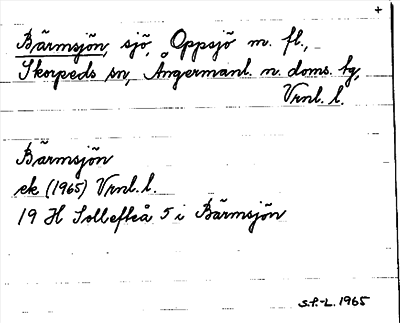 +
Bärmsjön, sjö, Oppsjö m. fl.,
Skorpeds sn, Ångermanl. n. doms. tg,
Vrnl. l.
Bärmsjön
ek (1965) Vrnl. l.
19 H Sollefteå 5 i Bärmsjön
S.F.-L. 1965